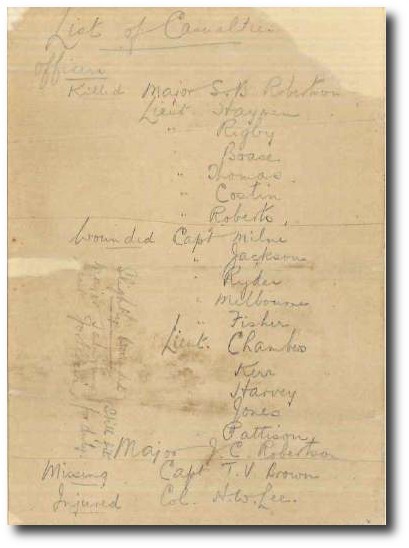 List of Casualties
officers
Killed Major S.B. Robertson
Lieut Haymen
" Rigby
Boase
" Thomas.
" Costin
" Roberts,
Wounded Capt Milne
" Jackson
" Ryder
" Melbourne
" Fisher
Lieut. Chambers
Kerr
Harvey
Jones
Pattison,
Major J. C. Robertson
Missing Capt T. V. Brown
Injured Col. H.W. Lee.
Slightly wounded